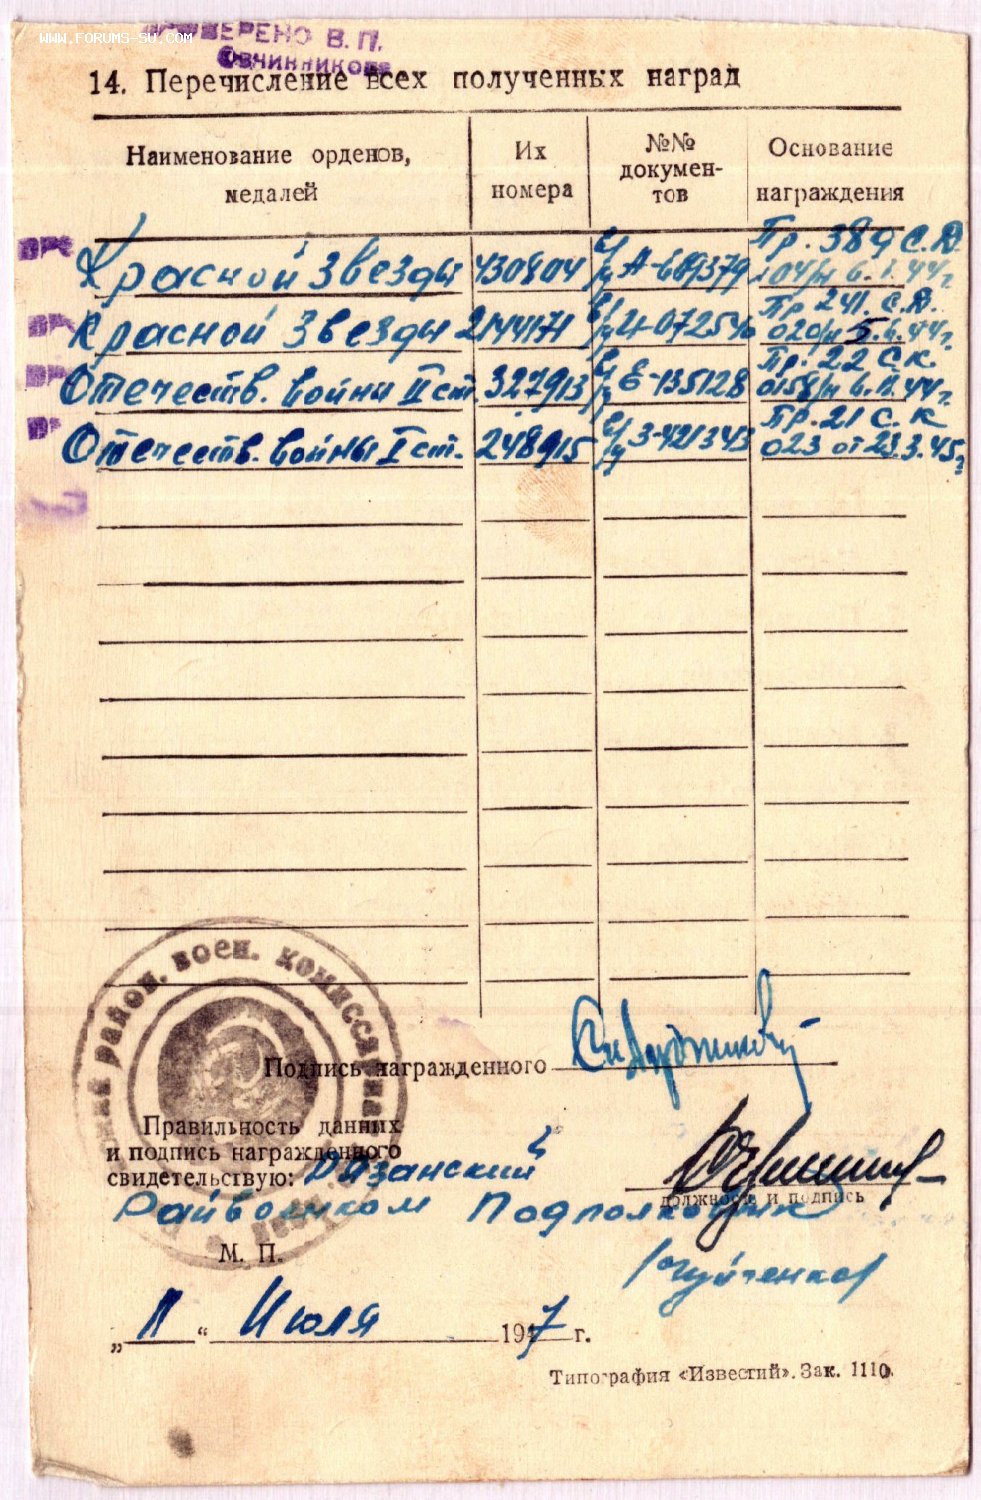 WWW.FORUMS-SU.COM
ПРОВЕРЕНО В. П.
Овчинникова
14. Перечисление всех полученных наград
Наименование орденов, медалей
Их номера
№№ докумен-тов
Основание награждения
Красной Звезды 430804 А-689379 Пр. 389 С.Д. 104/н 6.1.44г.
Красной Звезды 2144171 072540 Пр. 241. С.Д. 020/н 5.6.44г.
Отечеств. войны II ст. 327913 Е-135128 Пр. 22 С.К. 0158/н 6.11.44г.
Отечеств. войны I ст. 248915 З-421343 Пр. 21 С. К 023 от 23.3.45г
район. воен. комиссариат
Подпись награжденного
Правильность данных
и подпись награжденного
свидетельствую: Рязанский
должность и подпись
Райвоенком Подполковник
М. П.
„11“ Июля 1947 г.
Типография «Известий». Зак. 1110.